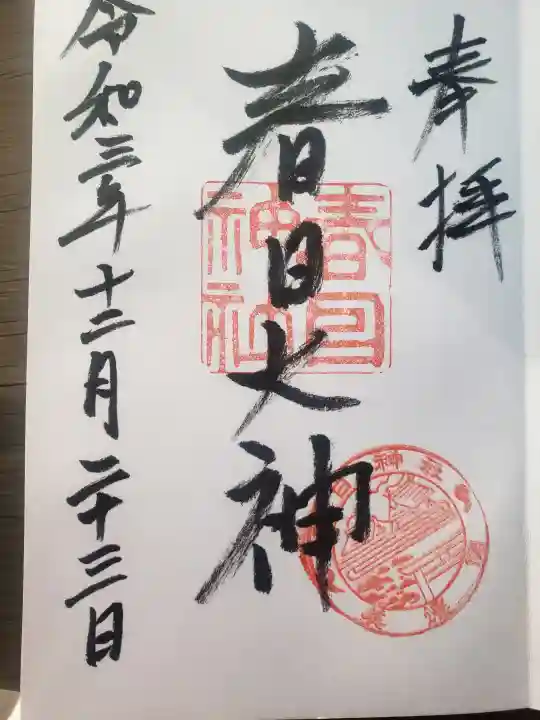 奉拝
春日大神
春日
神社
令和三年十二月二十三日